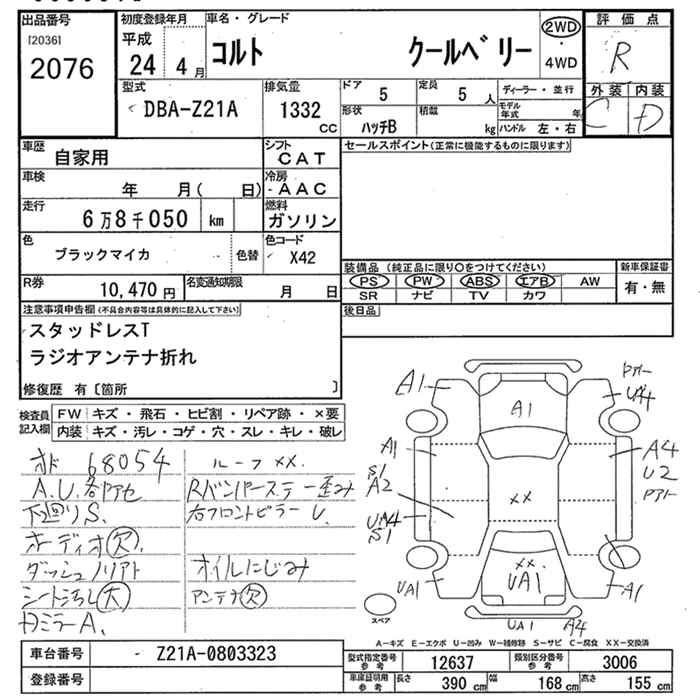 出品番号
[2036]
2076
初度登録年月
平成
24 4 月
車名・グレード
コルト クールベリー
2WD
・
4WD
評価点
R
外装 内装
C D
型式
DBA-Z21A
排気量
1332
cc
ドア 5
定員 5 人
形状 ハッチB
積載 kg
ディーラー・並行
モデル年式 年
ハンドル 左・右
車歴 自家用
シフト CAT
車検 年 月( 日)
冷房 AAC
走行 6万8千050 km
燃料 ガソリン
色 ブラックマイカ 色替
色コード X42
R券 10,470 円
名変通知期限 月 日
セールスポイント(正常に機能するものに限ります)
装備品 (純正品に限り○をつけてください)
PS PW ABS エアB AW
SR ナビ TV カワ
新車保証書
有・無
後日品
注意事項申告欄(不具合内容等は具体的に記入して下さい)
スタッドレスT
ラジオアンテナ折れ
修復歴 有〔箇所 〕
検査員記入欄
FW キズ・飛石・ヒビ割・リペア跡・×要
内装 キズ・汚レ・コゲ・穴・スレ・キレ・破レ
オド 68054
A.U.各部アセ
下回りS.
オーディオ欠.
ダッシュノリアト
シート汚し大
白ミラーA.
ルーフ××.
Rバンパーステー歪み
右フロントピラーU.
オイルにじみ
アンテナ欠
A1
A1
UA4
A1
S1
A2
UA4
S1
A4
U2
××
××
UA1
UA1
A1
UA1 A4
スペア
A-キズ E-エクボ U-凹み W-補修跡 S-サビ C-腐食 XX-交換済
車台番号 - Z21A-0803323
登録番号
型式指定番号 参考 12637
類別区分番号 参考 3006
車庫証明用 参考 長さ 390 cm 幅 168 cm 高さ 155 cm